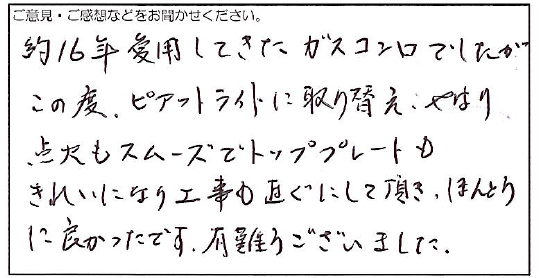 ご意見・ご感想などをお聞かせください。
約16年愛用してきたガスコンロでしたが
この度、ピアットライトに取り替え、やはり
点火もスムーズでトッププレートも
きれいになり工事も直ぐにして頂き、ほんとう
に良かったです。有難うございました。